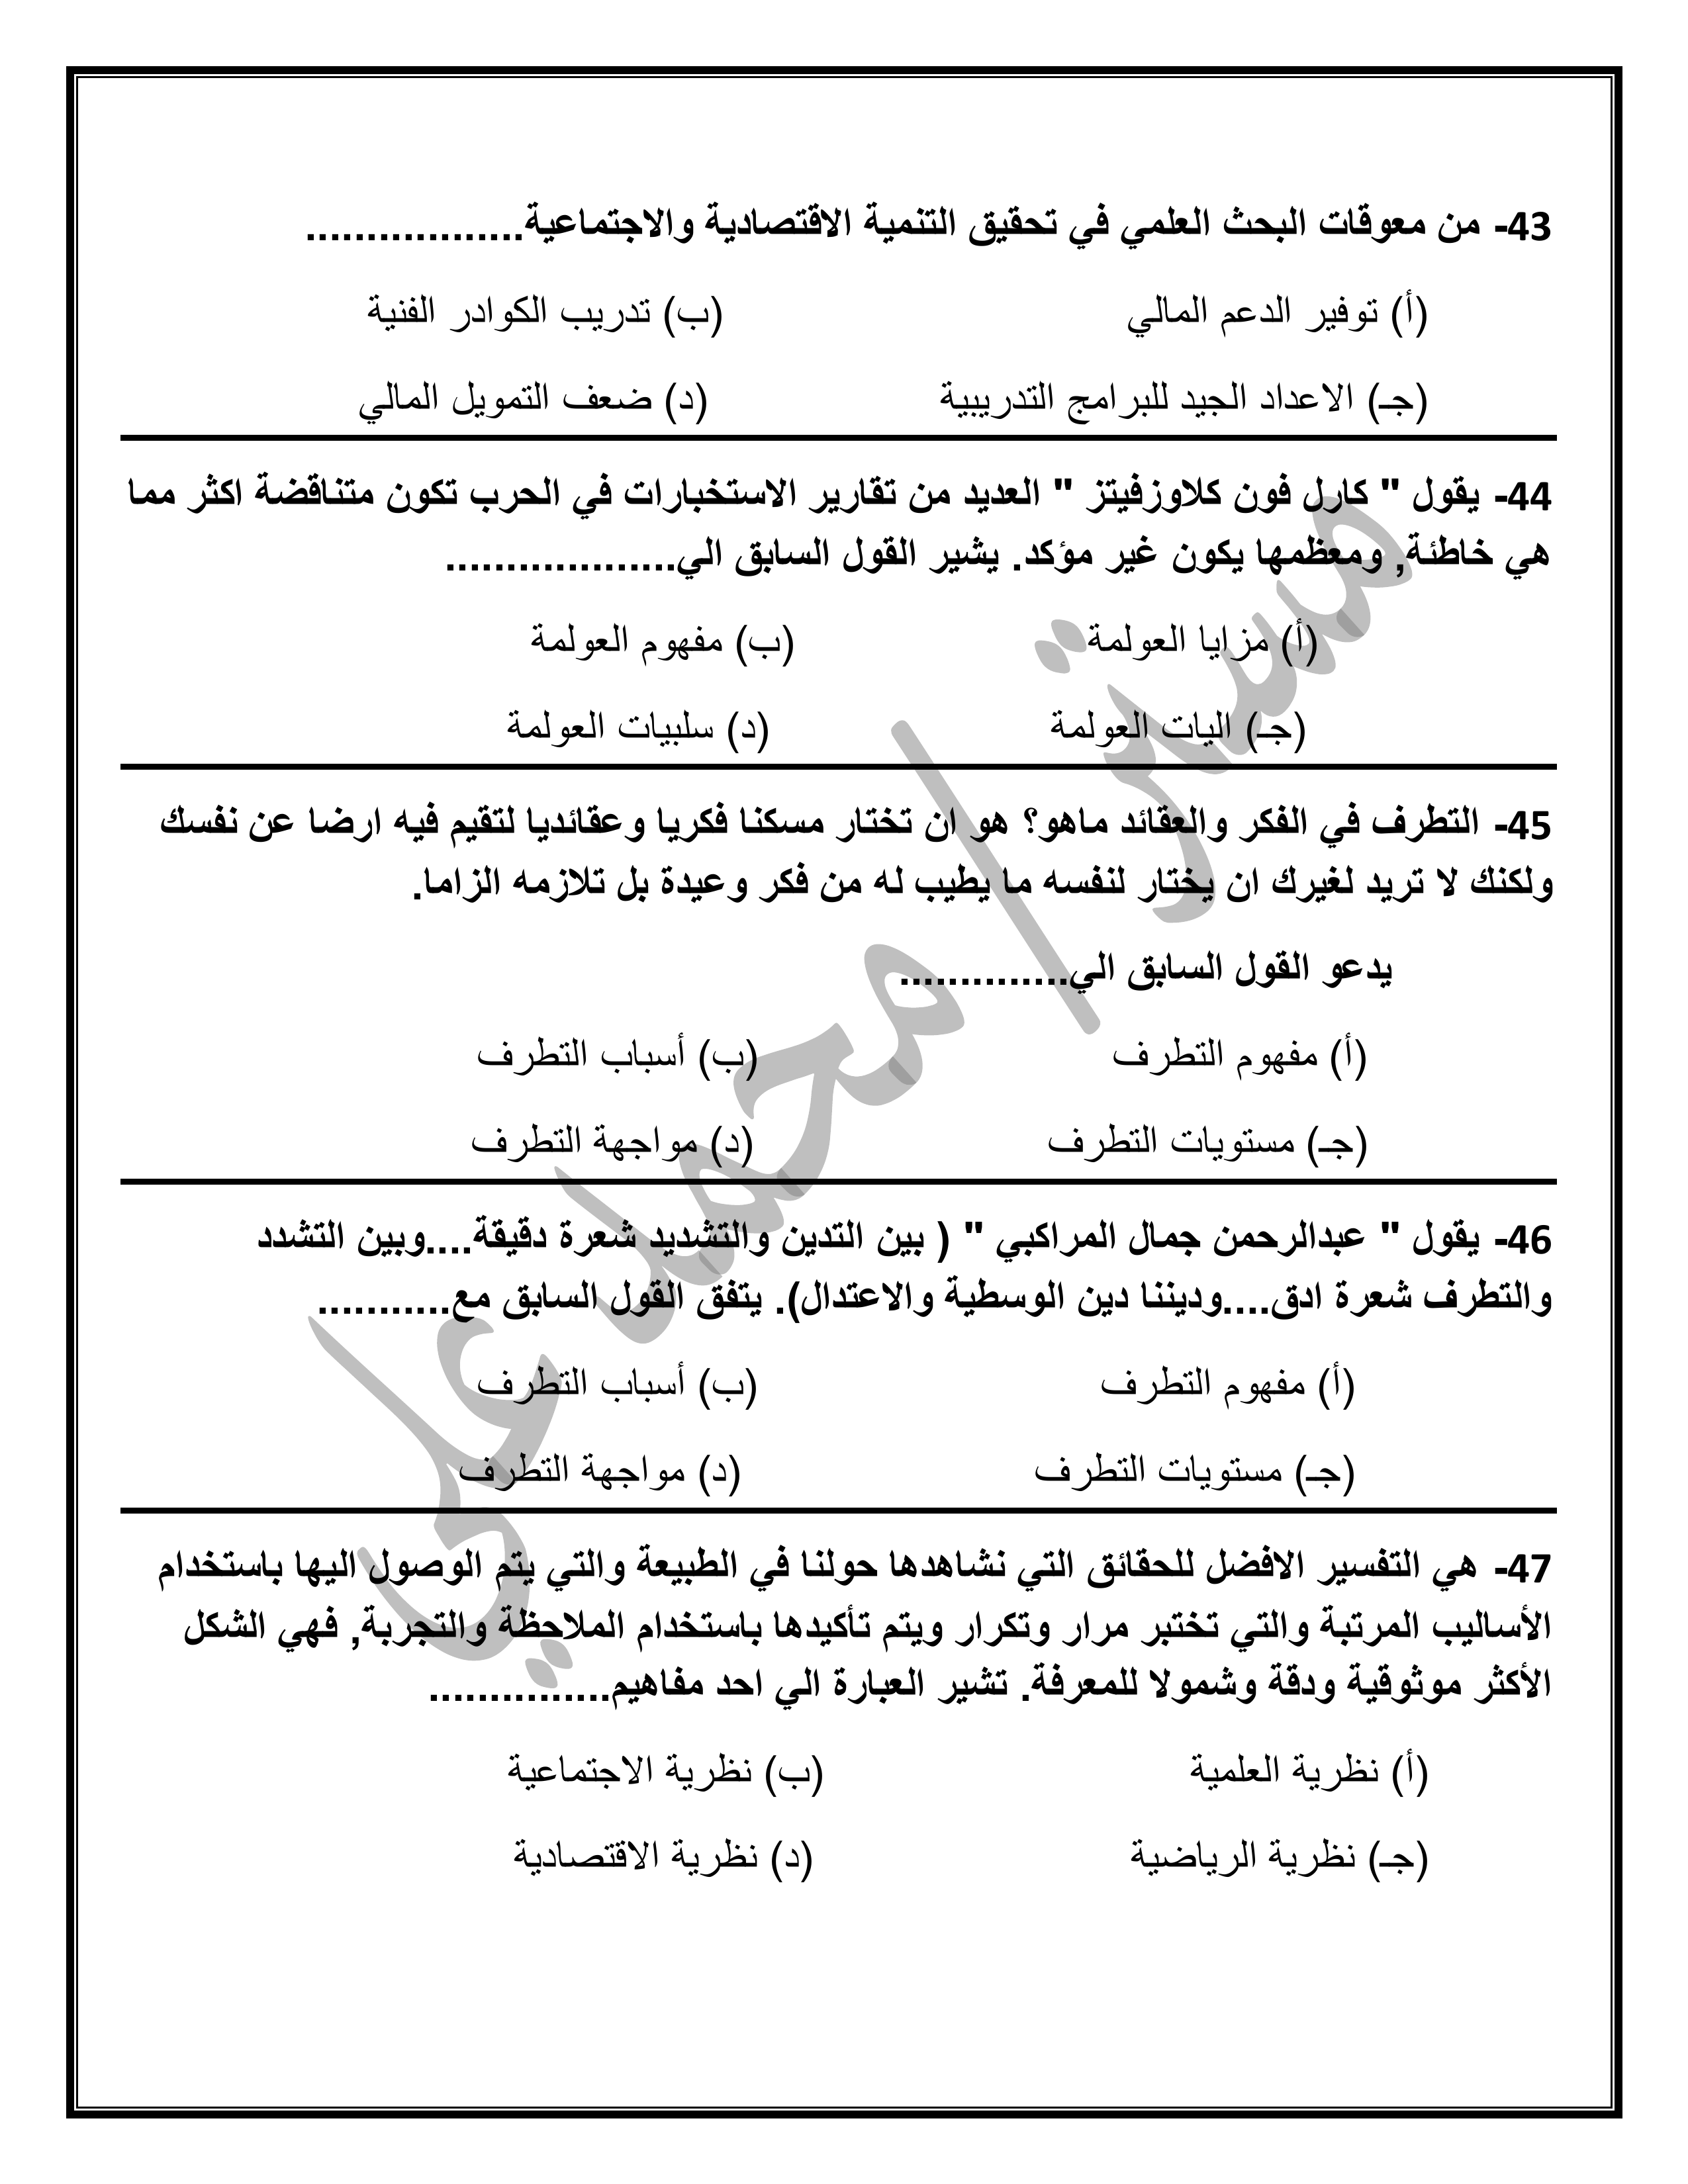 43- من معوقات البحث العلمي في تحقيق التنمية الاقتصادية والاجتماعية..................
(أ) توفير الدعم المالي (ب) تدريب الكوادر الفنية
(جـ) الاعداد الجيد للبرامج التدريبية (د) ضعف التمويل المالي
44- يقول " كارل فون كلاوزفيتز " العديد من تقارير الاستخبارات في الحرب تكون متناقضة اكثر مما
هي خاطئة, ومعظمها يكون غير مؤكد. يشير القول السابق الي...................
(أ) مزايا العولمة (ب) مفهوم العولمة
(جـ) اليات العولمة (د) سلبيات العولمة
45- التطرف في الفكر والعقائد ماهو؟ هو ان تختار مسكنا فكريا وعقائديا لتقيم فيه ارضا عن نفسك
ولكنك لا تريد لغيرك ان يختار لنفسه ما يطيب له من فكر وعيدة بل تلازمه الزاما.
يدعو القول السابق الي..............
(أ) مفهوم التطرف (ب) أسباب التطرف
(جـ) مستويات التطرف (د) مواجهة التطرف
46- يقول " عبدالرحمن جمال المراكبي " ( بين التدين والتشديد شعرة دقيقة....وبين التشدد
والتطرف شعرة ادق....وديننا دين الوسطية والاعتدال). يتفق القول السابق مع...........
(أ) مفهوم التطرف (ب) أسباب التطرف
(جـ) مستويات التطرف (د) مواجهة التطرف
47- هي التفسير الافضل للحقائق التي نشاهدها حولنا في الطبيعة والتي يتم الوصول اليها باستخدام
الأساليب المرتبة والتي تختبر مرار وتكرار ويتم تأكيدها باستخدام الملاحظة والتجربة, فهي الشكل
الأكثر موثوقية ودقة وشمولا للمعرفة. تشير العبارة الي احد مفاهيم...............
(أ) نظرية العلمية (ب) نظرية الاجتماعية
(جـ) نظرية الرياضية (د) نظرية الاقتصادية
مستر/محمد علي